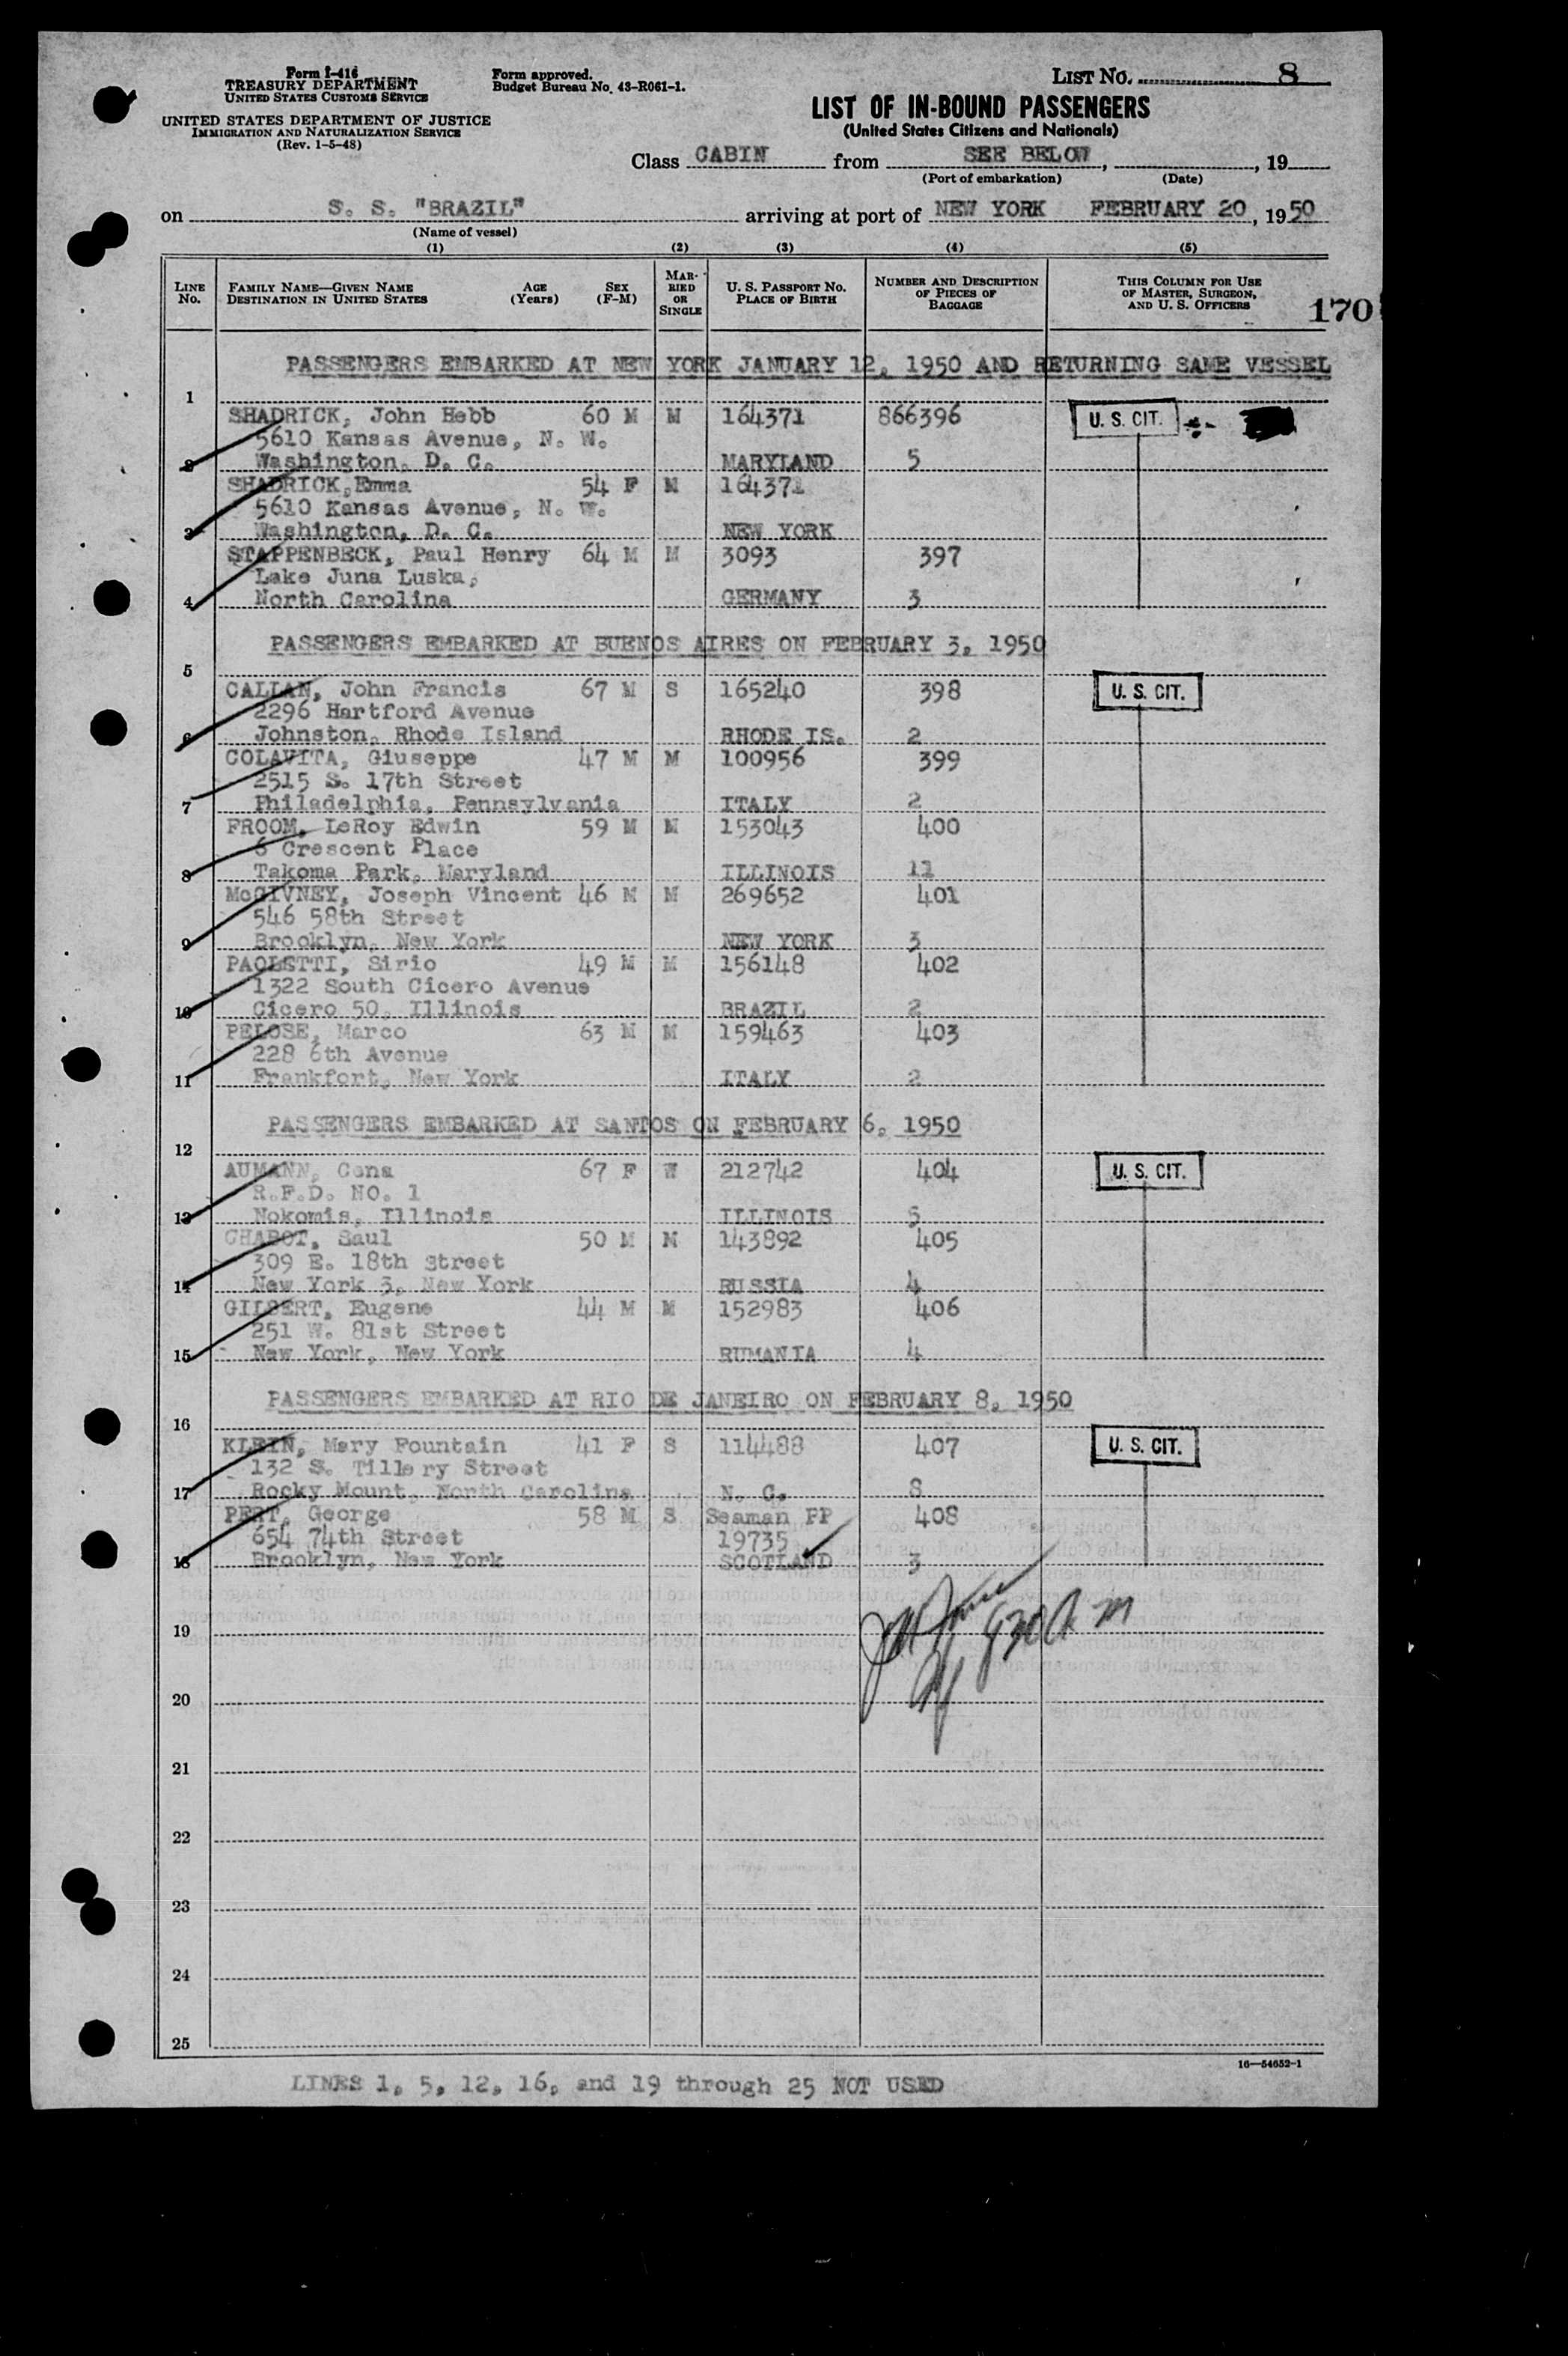 Form I-416
TREASURY DEPARTMENT
UNITED STATES CUSTOMS SERVICE
UNITED STATES DEPARTMENT OF JUSTICE
IMMIGRATION AND NATURALIZATION SERVICE
(Rev. 1-5-48)
Form approved.
Budget Bureau No. 43-R061-1.
LIST No. 8
LIST OF IN-BOUND PASSENGERS
(United States Citizens and Nationals)
Class CABIN from SEE BELOW, , 19
(Port of embarkation) (Date)
on S. S. "BRAZIL" arriving at port of NEW YORK FEBRUARY 20, 1950
(Name of vessel)
(1) (2) (3) (4) (5)
LINE No. FAMILY NAME—GIVEN NAME DESTINATION IN UNITED STATES AGE (Years) SEX (F-M) MARRIED OR SINGLE U. S. PASSPORT NO. PLACE OF BIRTH NUMBER AND DESCRIPTION OF PIECES OF BAGGAGE THIS COLUMN FOR USE OF MASTER, SURGEON, AND U. S. OFFICERS
170
PASSENGERS EMBARKED AT NEW YORK JANUARY 12, 1950 AND RETURNING SAME VESSEL
1
SHADRICK, John Hebb 60 M M 164371 866396 U. S. CIT.
5610 Kansas Avenue, N. W.
2 Washington, D. C. MARYLAND 5
SHADRICK, Emma 54 F M 164371
5610 Kansas Avenue, N. W.
3 Washington, D. C. NEW YORK
STAPPENBECK, Paul Henry 64 M M 3093 397
Lake Juna Luska,
4 North Carolina GERMANY 3
PASSENGERS EMBARKED AT BUENOS AIRES ON FEBRUARY 3, 1950
5
CALLAN, John Francis 67 M S 165240 398 U. S. CIT.
2296 Hartford Avenue
6 Johnston, Rhode Island RHODE IS. 2
COLAVITA, Giuseppe 47 M M 100956 399
2515 S. 17th Street
7 Philadelphia, Pennsylvania ITALY 2
FROOM, LeRoy Edwin 59 M M 153043 400
6 Crescent Place
8 Takoma Park, Maryland ILLINOIS 11
McGIVNEY, Joseph Vincent 46 M M 269652 401
546 58th Street
9 Brooklyn, New York NEW YORK 3
PAOLETTI, Sirio 49 M M 156148 402
1322 South Cicero Avenue
10 Cicero 50, Illinois BRAZIL 2
PELOSE, Marco 63 M M 159463 403
228 6th Avenue
11 Frankfort, New York ITALY 2
PASSENGERS EMBARKED AT SANTOS ON FEBRUARY 6, 1950
12
AUMANN, Cena 67 F W 212742 404 U. S. CIT.
R.F.D. NO. 1
13 Nokomis, Illinois ILLINOIS 5
CHABOT, Saul 50 M M 143892 405
309 E. 18th Street
14 New York 3, New York RUSSIA 4
GILBERT, Eugene 44 M M 152983 406
251 W. 81st Street
15 New York, New York RUMANIA 4
PASSENGERS EMBARKED AT RIO DE JANEIRO ON FEBRUARY 8, 1950
16
KLEIN, Mary Fountain 41 F S 114488 407 U. S. CIT.
132 S. Tillery Street
17 Rocky Mount, North Carolina N. C. 8
PERT, George 58 M S Seaman PP 408
654 74th Street 19735
18 Brooklyn, New York SCOTLAND 3
19
20
21
22
23
24
25
16—54652-1
LINES 1, 5, 12, 16, and 19 through 25 NOT USED